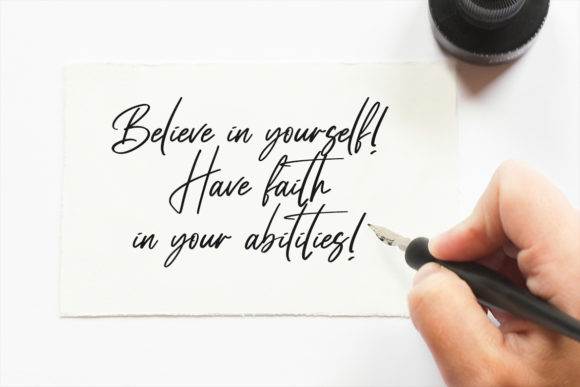 Believe in yourself!
Have faith
in your abilities!